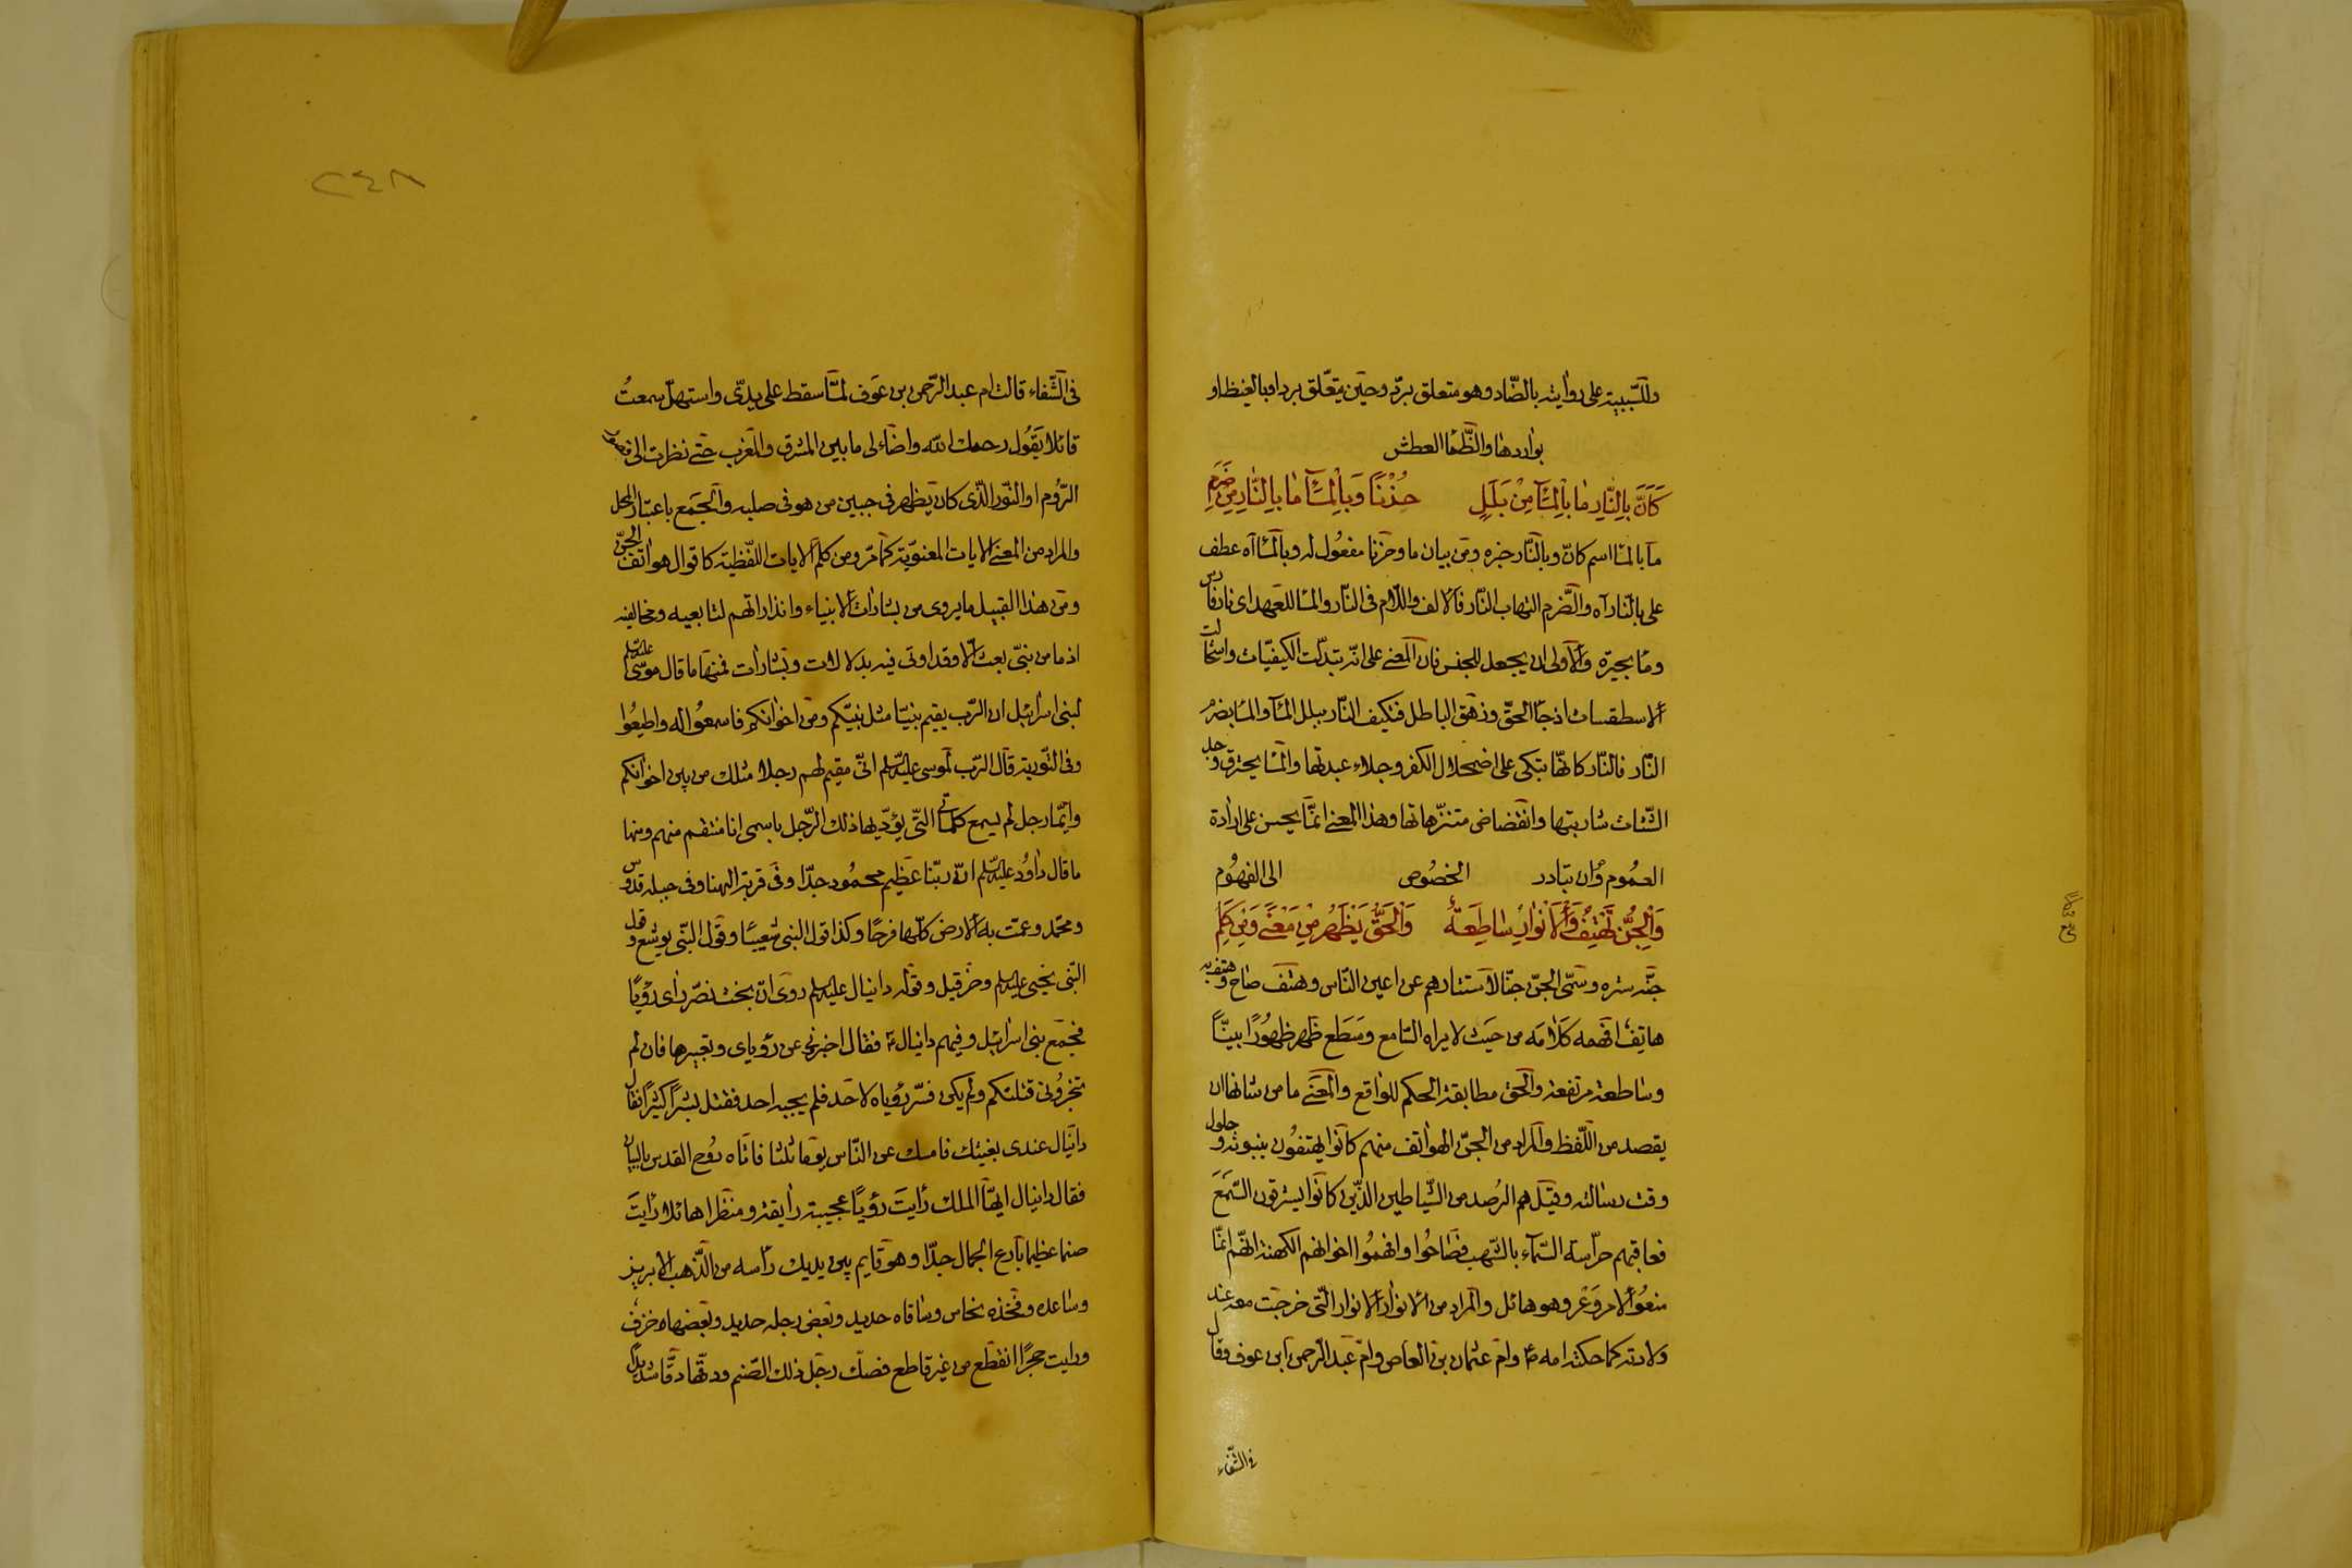 وللسّببية على رواية بالضّاد وهو متعلق بردّ وحين يتعّلق برد او بالغيظ او
بواردها والظّمأ العطش
كَاَنَّ بِالنَّارِ مَا بِالْمَآءِ مِنْ بَلَلٍ حُزْنًا وَبِالْمَآءِ مَا بِالنَّارِ مِنْ ضَرَمِ
ما بالماء اسم كانّ وبالنّار خبره ومن بيان ما وحزنا مفعُول له وبالماء آه عطف
على بالنار آه والضّرم التهاب النّار فالالف واللّام فى النّار والماء للعهد اى نار فارس
وماء بحيرة والاولى ان يجعل للجنس فان المعنى على انّه تبدّلت الكيفيّات واستحالت
الاسطقسات اذ جاء الحقّ وزهق الباطل فتكيف النّار ببلل الماء والماء بضرم
النّار فالنّار كانّها تبكى على اضمحلال الكفر وجلاء عبدتها والماء يحترق
شاربتها وانقضاض متنزّهاتها وهذا المعنى انمّا يحسن على ارادة
العمُوم وان تبادر الخصُوص الى الفهوُم
وَالْجِنُّ تَهْتِفُ وَالْاَنْوَارُ سَاطِعَةٌ وَالْحَقُّ يَظْهَرُ مِنْ مَعْنًى وَمِنْ كَلِمِ
جنّه ستره وسمّى الجنّ جنّا لاستتارهم عن اعين النّاس وهتف صاح وهتف به
هاتِف افهمه كلامَه من حيَث لا يراه السّامع وسَطَع ظهر ظهوُرًا بينًّا
وساطعة مرتفعة والحق مطابقة الحكم للواقع والمعنى ما من شانها ان
يقصد من اللّفظ والمراد من الجنّ الهواتف منهم كانوا يهتفوُن بنبوته وحلول
وقت رسالته وقيل هم الرُصد من الشّياطين الذّين كانوا يسترقون السّمَعَ
فعاقبهم حرّاسة السّماء بالشّهب فصَاحُوا وافهموُا اخوانهم الكهنة انهّم انمّا
منعوُا لامر وَعْر وهو هائل والمراد من الانوار الانوار التّى خرجت معه عند
ولادته كما حكته امه وام عثمان بن العاص وامّ عبد الرّحمن ابن عوف فقال
فى الشّفاء
٢٤٨
فى الشّفاء قالت ام عبد الرّحمن بن عَوف لمّا سقط على يدىّ واستهلّ سمعتُ
قائلا يَقُول رحمك الله واضاء لى ما بين المشرق والمغرب حتى نظرت الى قصور
الرُّوم او النّور الذّى كان يظهر فى جبين من هو فى صلبه والجمَع باعتبار المحل
والمراد من المعنى الايات المعنويّة كما مرّ ومن كلم الايات اللّفظية كاقوال هواتف الجنّ
ومن هذا القبيل ما يروى من بشارات الانبياء وانذاراتهم لتابعيه ومخالفيه
اذ ما من نبىّ بعث الّا وقد اوتى فيه بدلالات وبشارات فمنها ما قال موسى عليه السلم
لبنى اسرائيل ان الرّب يقيم نبيّا مثل نبيّكم ومن اخوانكم فاسمعوُا له واطيعُوا
وفى التّورية قال الرّب لموسى عليه السّلم انّى مقيم لهم رجلا مثلك من بين اخوانكم
وايّما رجل لم يسمع كلماتى التّى يؤدّيها ذلك الرّجل باسمى انا منتقم منهم ومنها
ما قال داوُد عليه السّلم انّ ربّنا عَظيم محموُد جدّا وفى قرية الهنا وفى جبله قدّوس
ومحمّد وعمّت به الارض كلّها فرحًا وكذا قول النبى شعيبًا وقول النّبى يوشع وقول
النّبى يحيى عليه السلم وحزقيل وقوله دانيال عليه السلم روى انّ بخت نصّر رأى رؤيًا
فجمَع بنى اسرائيل وفيهم دانيال فقال اخبرنى عن رؤياى وتعبيرها فان لم
تخبروُنى قتلتكم ولم يكن فسّر رؤياه لاحد فلم يجبه احد فقتل بشرًا كثيرًا فقال
دانيال عندى بغيتك فامسك عن النّاس يوَما ثلثا فاتاه روُح القدس بالبيان
فقال دانيال ايهّا الملك رأيتَ رؤيًا عجيبة رايقة ومنظرا هائلا رأيتَ
صنما عظيما بَارع الجمال جدّا وهو قايم بين يديك رأسه من الذّهب الابريز
وساعده وفخذه نحاس وساقاه حديد وبعض رجله حديد وبعَضها خزف
ورايت حجرًا انقطَع من غير قاطع فصكّ رجَل ذلك الصّنم ودقّها دقًّا شديدًا